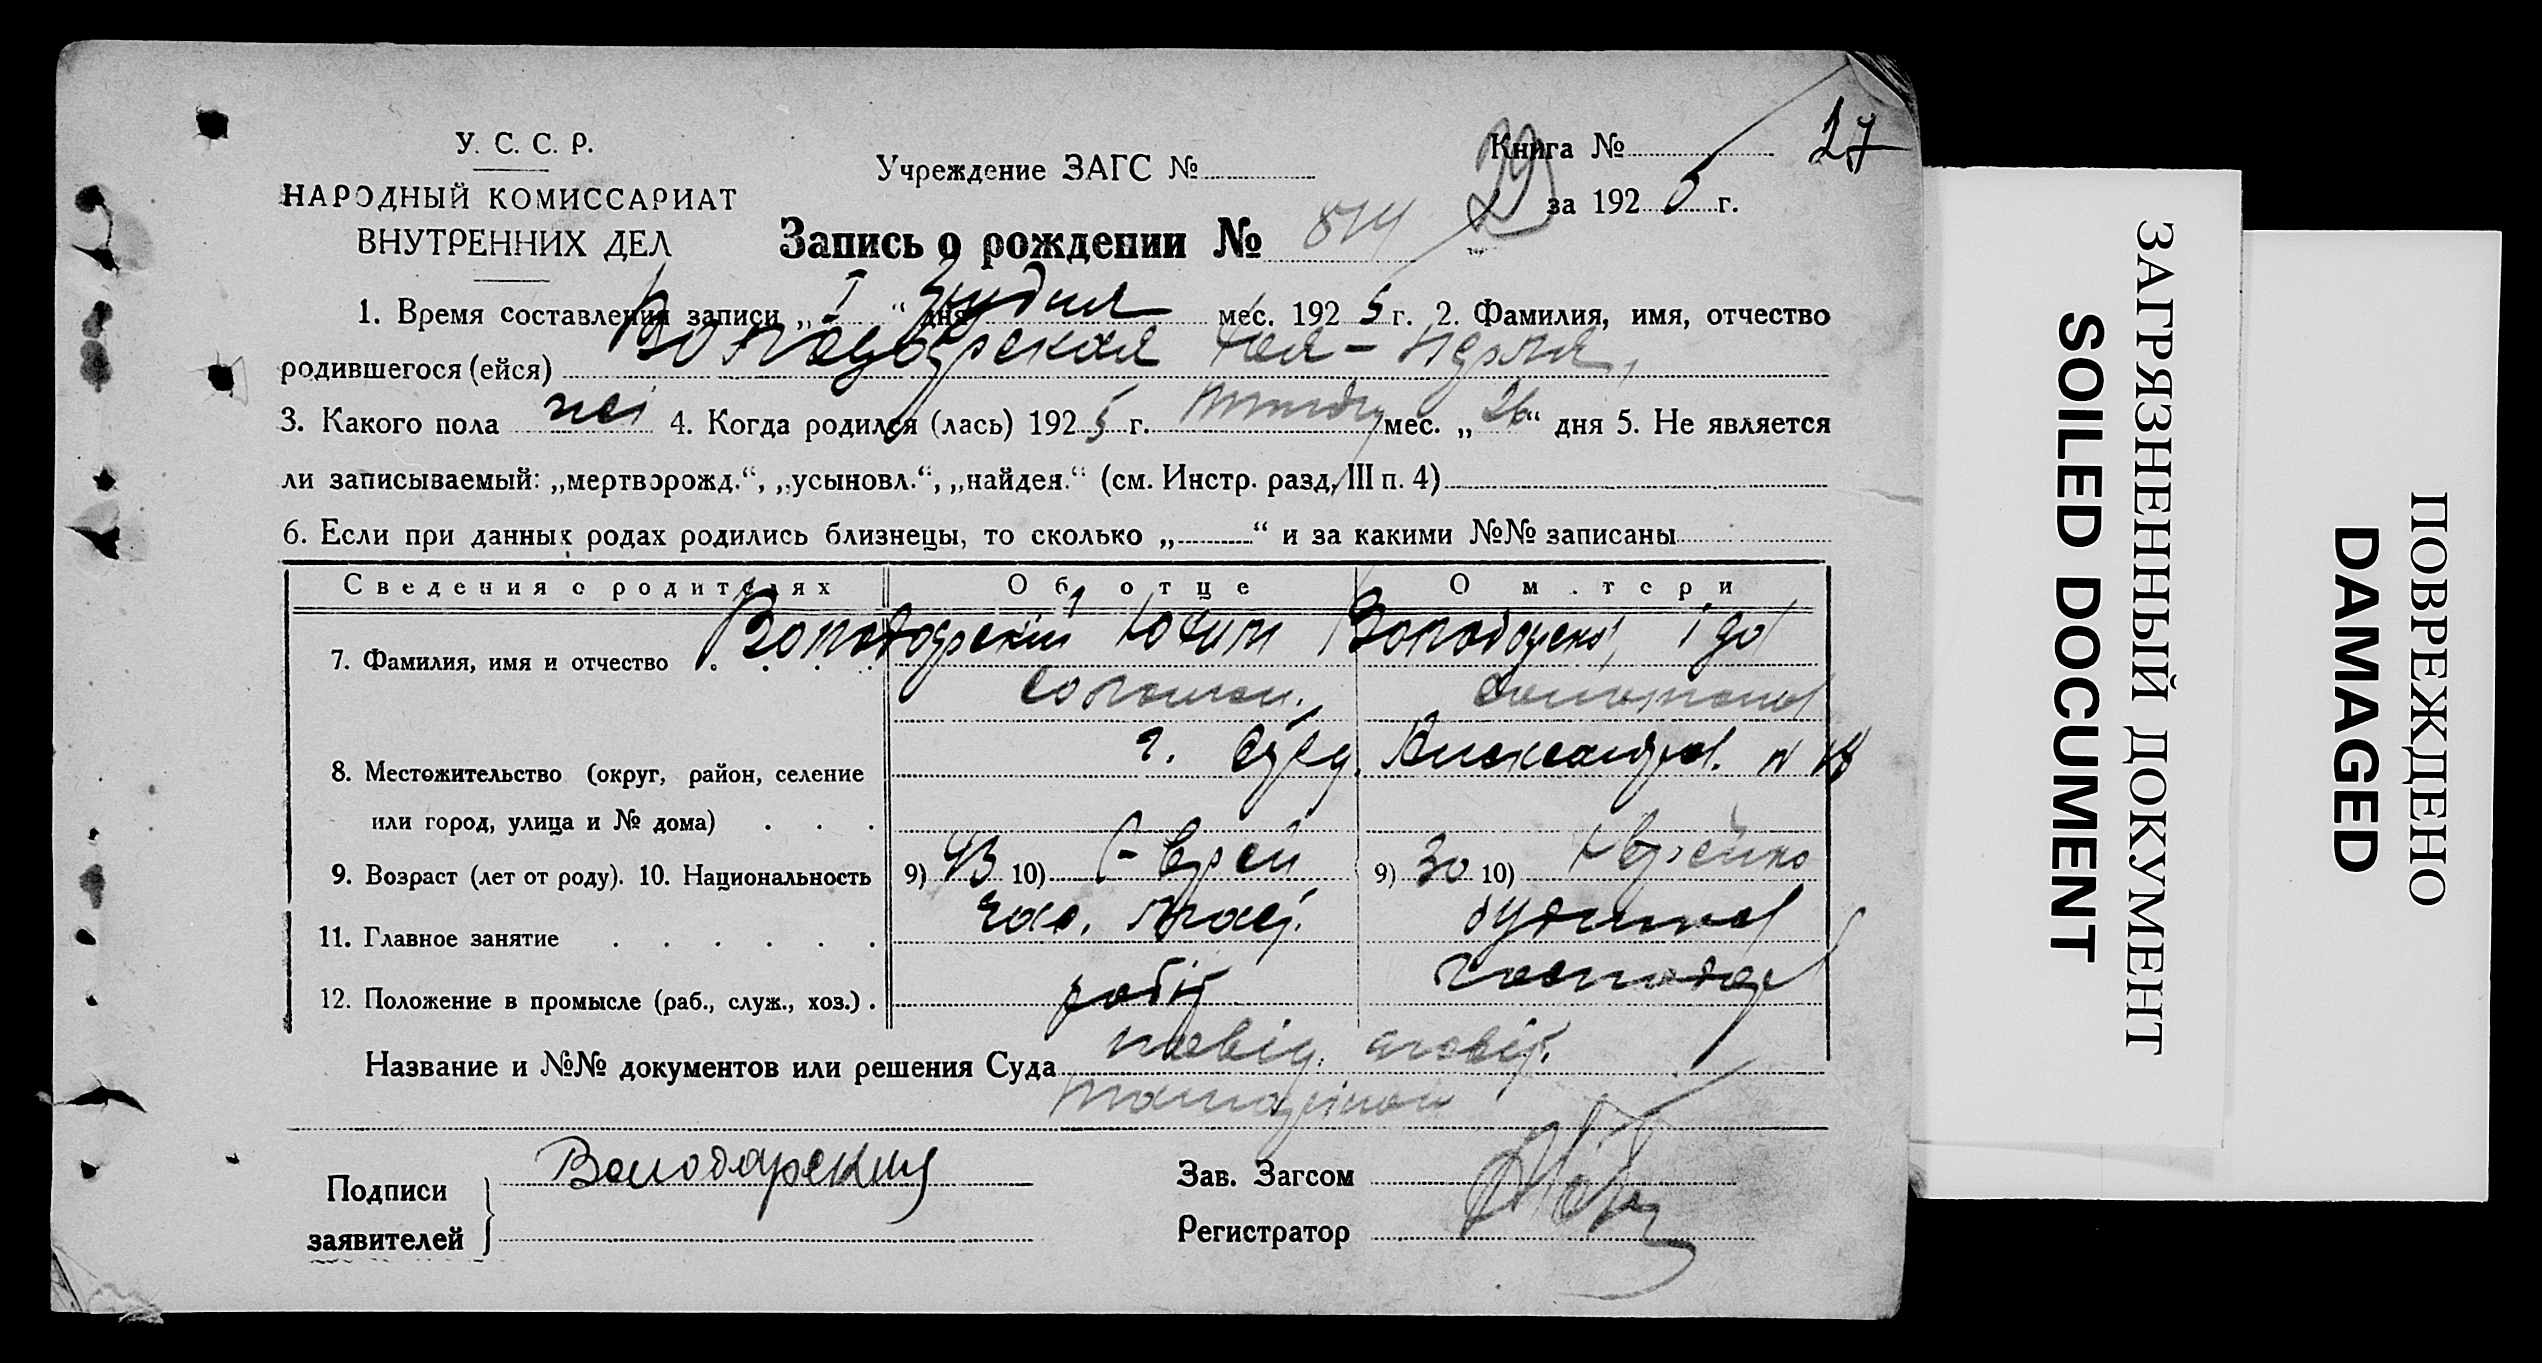 27
У. С. С. Р.
НАРОДНЫЙ КОМИССАРИАТ
ВНУТРЕННИХ ДЕЛ
Учреждение ЗАГС №
Книга №
29
за 1925 г.
Запись о рождении № 814
1. Время составления записи „ I “ дня Грудня мес. 1925 г. 2. Фамилия, имя, отчество
родившегося (ейся) Володарская
3. Какого пола жі 4. Когда родился (лась) 1925 г. мес. „ 26 “ дня 5. Не является
ли записываемый: „мертворожд.“, „усыновл.“, „найден.“ (см. Инстр. разд. III п. 4)
6. Если при данных родах родились близнецы, то сколько „ “ и за какими №№ записаны
Сведения о родителях Об отце О матери
7. Фамилия, имя и отчество Володарський Володарська Іда
Соломон.
8. Местожительство (округ, район, селение г. Александров. № 18
или город, улица и № дома)
9. Возраст (лет от роду). 10. Национальность 9) 43 10) Еврей 9) 30 10) Еврейка
11. Главное занятие
12. Положение в промысле (раб., служ., хоз.) робіт господар
Название и №№ документов или решения Суда посвід.
Подписи
заявителей
Володарский
Зав. Загсом
Регистратор
ЗАГРЯЗНЕННЫЙ ДОКУМЕНТ
SOILED DOCUMENT
ПОВРЕЖДЕНО
DAMAGED